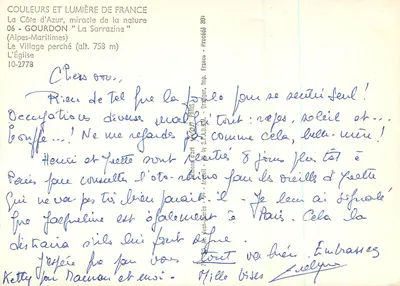 COULEURS ET LUMIÈRE DE FRANCE
La Côte d'Azur, miracle de la nature
06 - GOURDON "La Sarrazine"
(Alpes-Maritimes)
Le Village perché (alt. 758 m)
L'Église
10-2778
Chers vous,
Rien de tel que la pluie pour se sentir seul!
Occupations diverses malgré tout: repos, soleil et...
bouffe...! Ne me regardes pas comme cela, belle-mère!
Henri et Yvette sont rentrés 8 jours plus tôt à
Paris pour consulter l'oto-rhino pour les oreilles d'Yvette
qui ne va pas très bien paraît-il - Je leur ai signalé
que Jacqueline est également à Paris. Cela la
distraira s'ils lui font signe.
J'espère que pour vous tout va bien. Embrassez
Ketty pour Maman et moi - Mille bises Evelyne